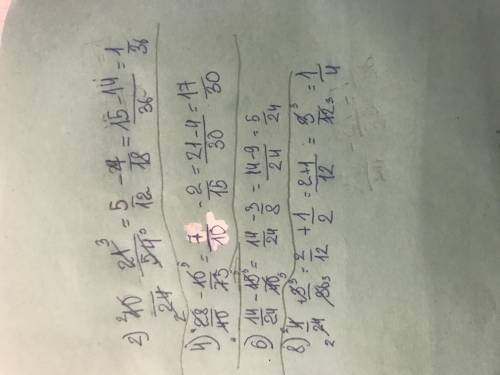 2) 10/24 - 21/54 = 5/12 - 7/18 = 15-14/36 = 1/36
4) 28/40 - 10/75 = 7/10 - 2/15 = 21-4/30 = 17/30
6) 14/24 - 15/40 = 14/24 - 3/8 = 14-9/24 = 5/24
8) 4/24 + 3/36 = 2/12 + 1/2 = 2+1/12 = 3/12 = 1/4